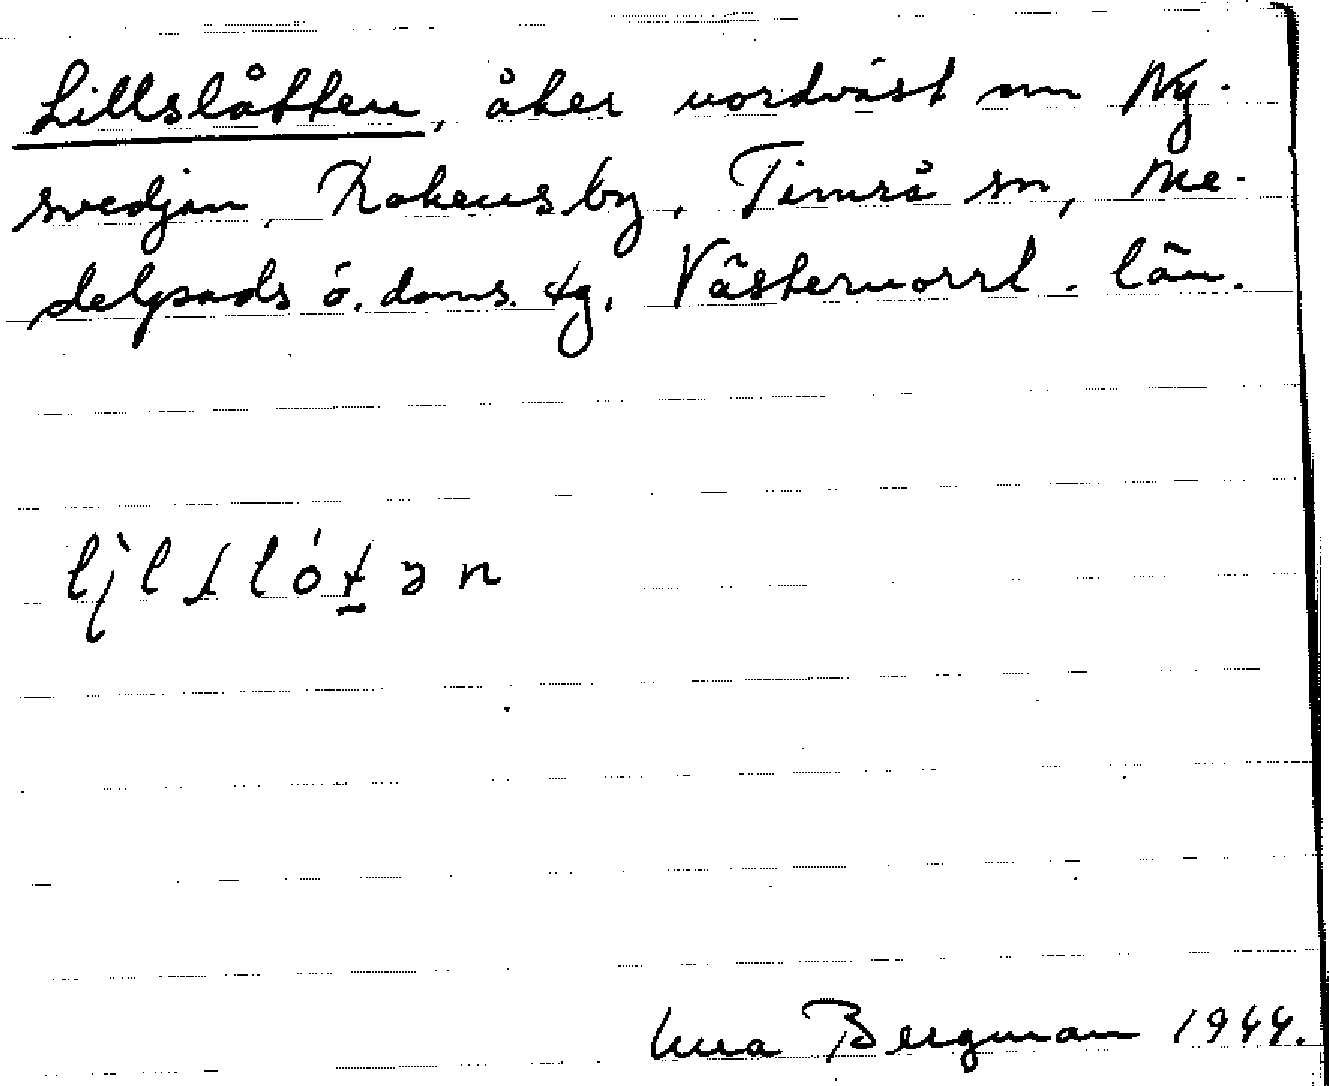 Lillslåtten, åker nordväst om Ny-
svedjan, Rokensby, Timrå sn, Me-
delpads ö. doms. tg, Västernorrl. län.
Bergman 1944.